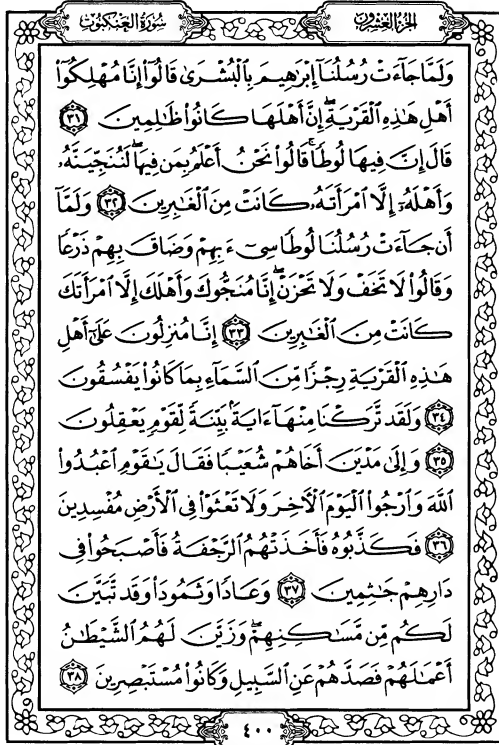 الجزء العشرون
سورة العنكبوت
وَلَمَّا جَآءَتْ رُسُلُنَآ إِبْرَٰهِيمَ بِٱلْبُشْرَىٰ قَالُوٓا۟ إِنَّا مُهْلِكُوٓا۟
أَهْلِ هَـٰذِهِ ٱلْقَرْيَةِ ۖ إِنَّ أَهْلَهَا كَانُوا۟ ظَـٰلِمِينَ ٣١
قَالَ إِنَّ فِيهَا لُوطًا ۚ قَالُوا۟ نَحْنُ أَعْلَمُ بِمَن فِيهَا ۖ لَنُنَجِّيَنَّهُۥ
وَأَهْلَهُۥٓ إِلَّا ٱمْرَأَتَهُۥ كَانَتْ مِنَ ٱلْغَـٰبِرِينَ ٣٢ وَلَمَّآ
أَن جَآءَتْ رُسُلُنَا لُوطًا سِىٓءَ بِهِمْ وَضَاقَ بِهِمْ ذَرْعًا
وَقَالُوا۟ لَا تَخَفْ وَلَا تَحْزَنْ ۖ إِنَّا مُنَجُّوكَ وَأَهْلَكَ إِلَّا ٱمْرَأَتَكَ
كَانَتْ مِنَ ٱلْغَـٰبِرِينَ ٣٣ إِنَّا مُنزِلُونَ عَلَىٰٓ أَهْلِ
هَـٰذِهِ ٱلْقَرْيَةِ رِجْزًا مِّنَ ٱلسَّمَآءِ بِمَا كَانُوا۟ يَفْسُقُونَ
٣٤ وَلَقَد تَّرَكْنَا مِنْهَآ ءَايَةًۢ بَيِّنَةً لِّقَوْمٍ يَعْقِلُونَ
٣٥ وَإِلَىٰ مَدْيَنَ أَخَاهُمْ شُعَيْبًا فَقَالَ يَـٰقَوْمِ ٱعْبُدُوا۟
ٱللَّهَ وَٱرْجُوا۟ ٱلْيَوْمَ ٱلْـَٔاخِرَ وَلَا تَعْثَوْا۟ فِى ٱلْأَرْضِ مُفْسِدِينَ
٣٦ فَكَذَّبُوهُ فَأَخَذَتْهُمُ ٱلرَّجْفَةُ فَأَصْبَحُوا۟ فِى
دَارِهِمْ جَـٰثِمِينَ ٣٧ وَعَادًا وَثَمُودَا۟ وَقَد تَّبَيَّنَ
لَكُم مِّن مَّسَـٰكِنِهِمْ ۖ وَزَيَّنَ لَهُمُ ٱلشَّيْطَـٰنُ
أَعْمَـٰلَهُمْ فَصَدَّهُمْ عَنِ ٱلسَّبِيلِ وَكَانُوا۟ مُسْتَبْصِرِينَ ٣٨
٤٠٠